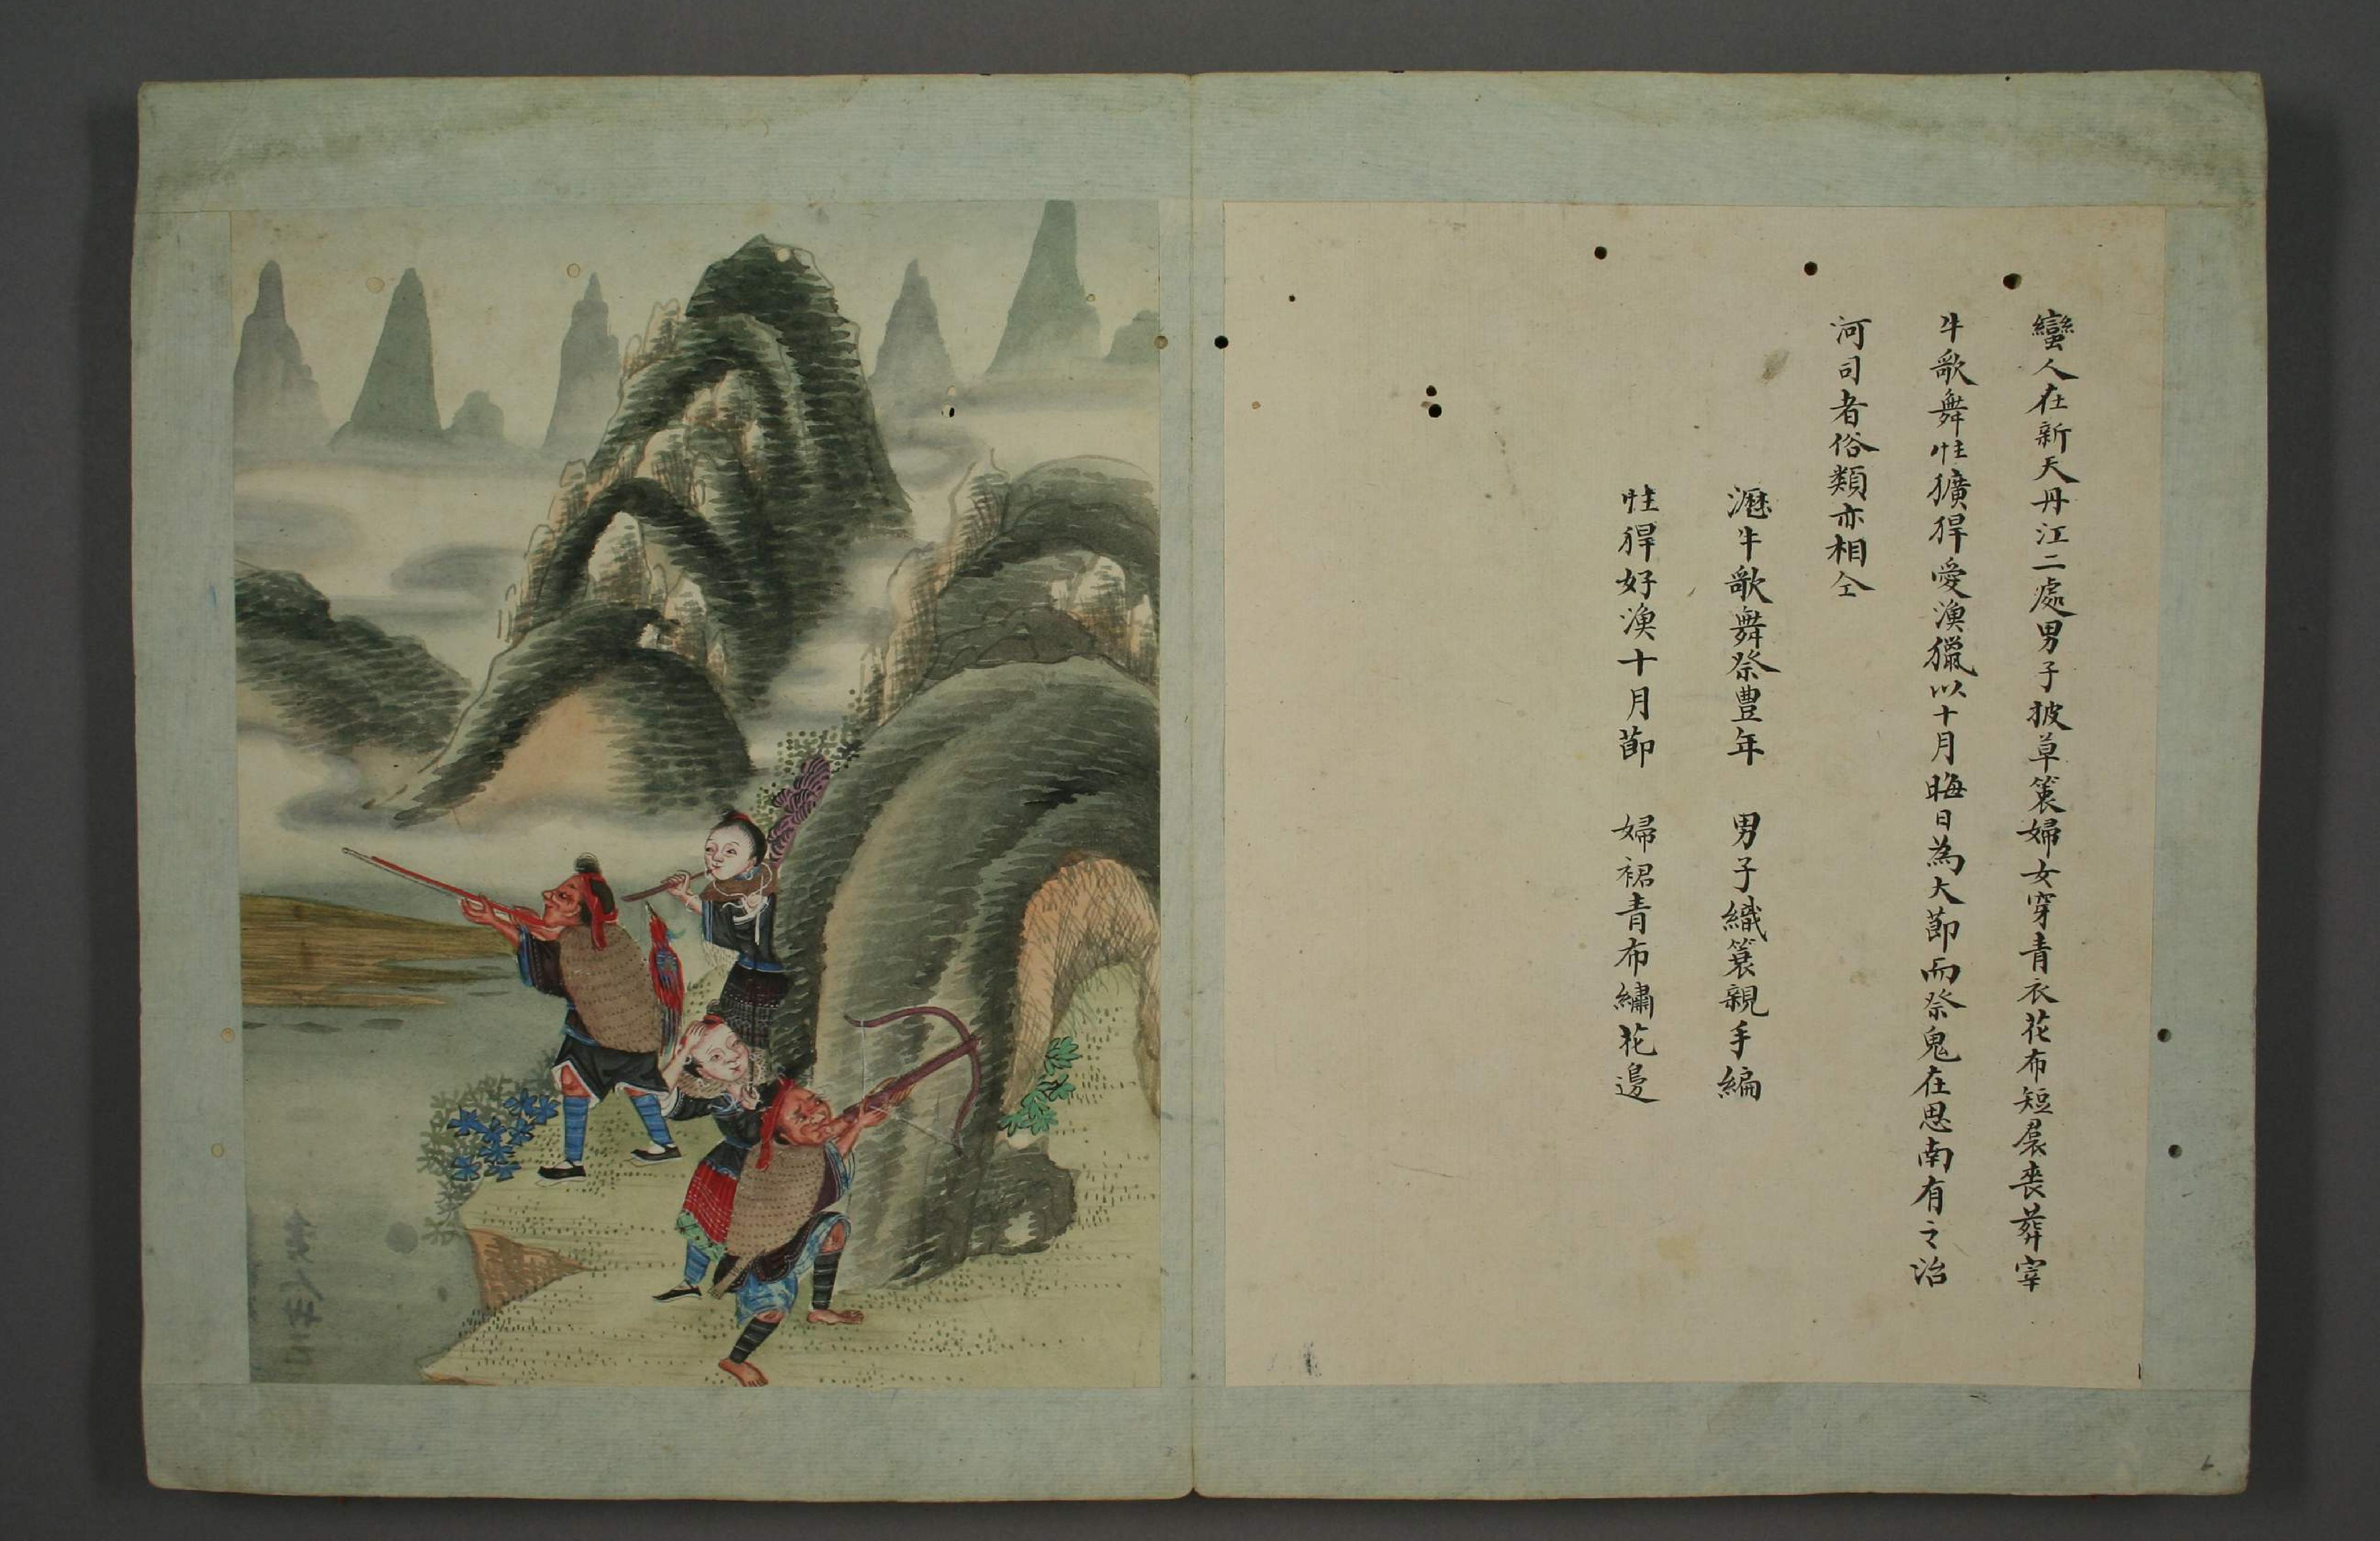 蠻人在新天丹江二處男子披草簑婦女穿青衣花布短裠喪葬宰
牛歌舞性獷猂愛漁獵以十月晦日為大節而祭鬼在思南有之治
河司者俗類亦相仝
瀝牛歌舞祭豊年 男子織簑親手編
性猂好漁十月節 婦裙青布繡花邊